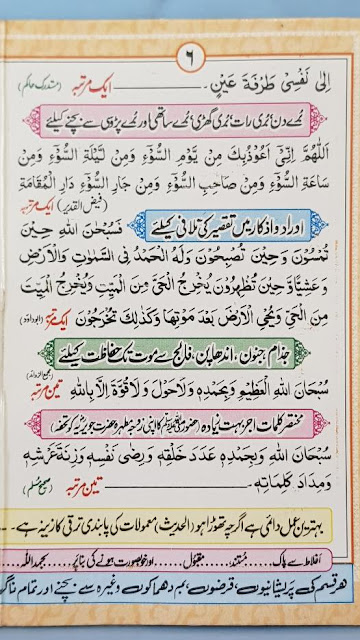 ٦
اِلٰى نَفْسِىْ طَرْفَةَ عَيْنٍ۔ ایک مرتبہ (مستدرک حاکم)
بُرے دن، بُری رات، بُری گھڑی، بُرے ساتھی اور بُرے پڑوسی سے بچنے کیلئے
اَللّٰهُمَّ اِنِّىْ اَعُوْذُبِكَ مِنْ يَّوْمِ السُّوْٓءِ وَمِنْ لَيْلَةِ السُّوْٓءِ وَمِنْ
سَاعَةِ السُّوْٓءِ وَمِنْ صَاحِبِ السُّوْٓءِ وَمِنْ جَارِ السُّوْٓءِ فِىْ دَارِ الْمُقَامَةِ
ایک مرتبہ (فیض القدیر)
اوراد و اذکار میں تقصیر کی تلافی کیلئے فَسُبْحٰنَ اللهِ حِيْنَ
تُمْسُوْنَ وَحِيْنَ تُصْبِحُوْنَ وَلَهُ الْحَمْدُ فِى السَّمٰوٰتِ وَالْاَرْضِ
وَعَشِيًّا وَّحِيْنَ تُظْهِرُوْنَ يُخْرِجُ الْحَىَّ مِنَ الْمَيِّتِ وَيُخْرِجُ الْمَيِّتَ
مِنَ الْحَىِّ وَيُحْىِ الْاَرْضَ بَعْدَ مَوْتِهَا وَكَذٰلِكَ تُخْرَجُوْنَ ایک مرتبہ (ابوداؤد)
جذام، جنون، اندھا پن، فالج سے موت تک حفاظت کیلئے
سُبْحَانَ اللهِ الْعَظِيْمِ وَبِحَمْدِهٖ وَلَاحَوْلَ وَلَا قُوَّةَ اِلَّا بِاللهِ تین مرتبہ (مجمع الزوائد)
مختصر کلمات اجر بہت زیادہ (حضور ﷺ کا اپنی زوجہ مطہرہ حضرت جویریہؓ کو تحفہ)
سُبْحَانَ اللهِ وَبِحَمْدِهٖ عَدَدَ خَلْقِهٖ وَرِضٰى نَفْسِهٖ وَزِنَةَ عَرْشِهٖ
وَمِدَادَ كَلِمَاتِهٖ۔ تین مرتبہ (صحیح مسلم)
بہترین عمل دائمی ہے اگرچہ تھوڑا ہو (الحدیث) معمولات کی پابندی ترقی کا زینہ ہے۔
اغلاط سے پاک..... مُستند..... مقبول..... اور خوبصورت ہونے کی بنا پر..... بحمد اللہ
ھر قسم کی پریشانیوں، قرضوں، بم دھماکوں وغیرہ سے بچنے اور تمام